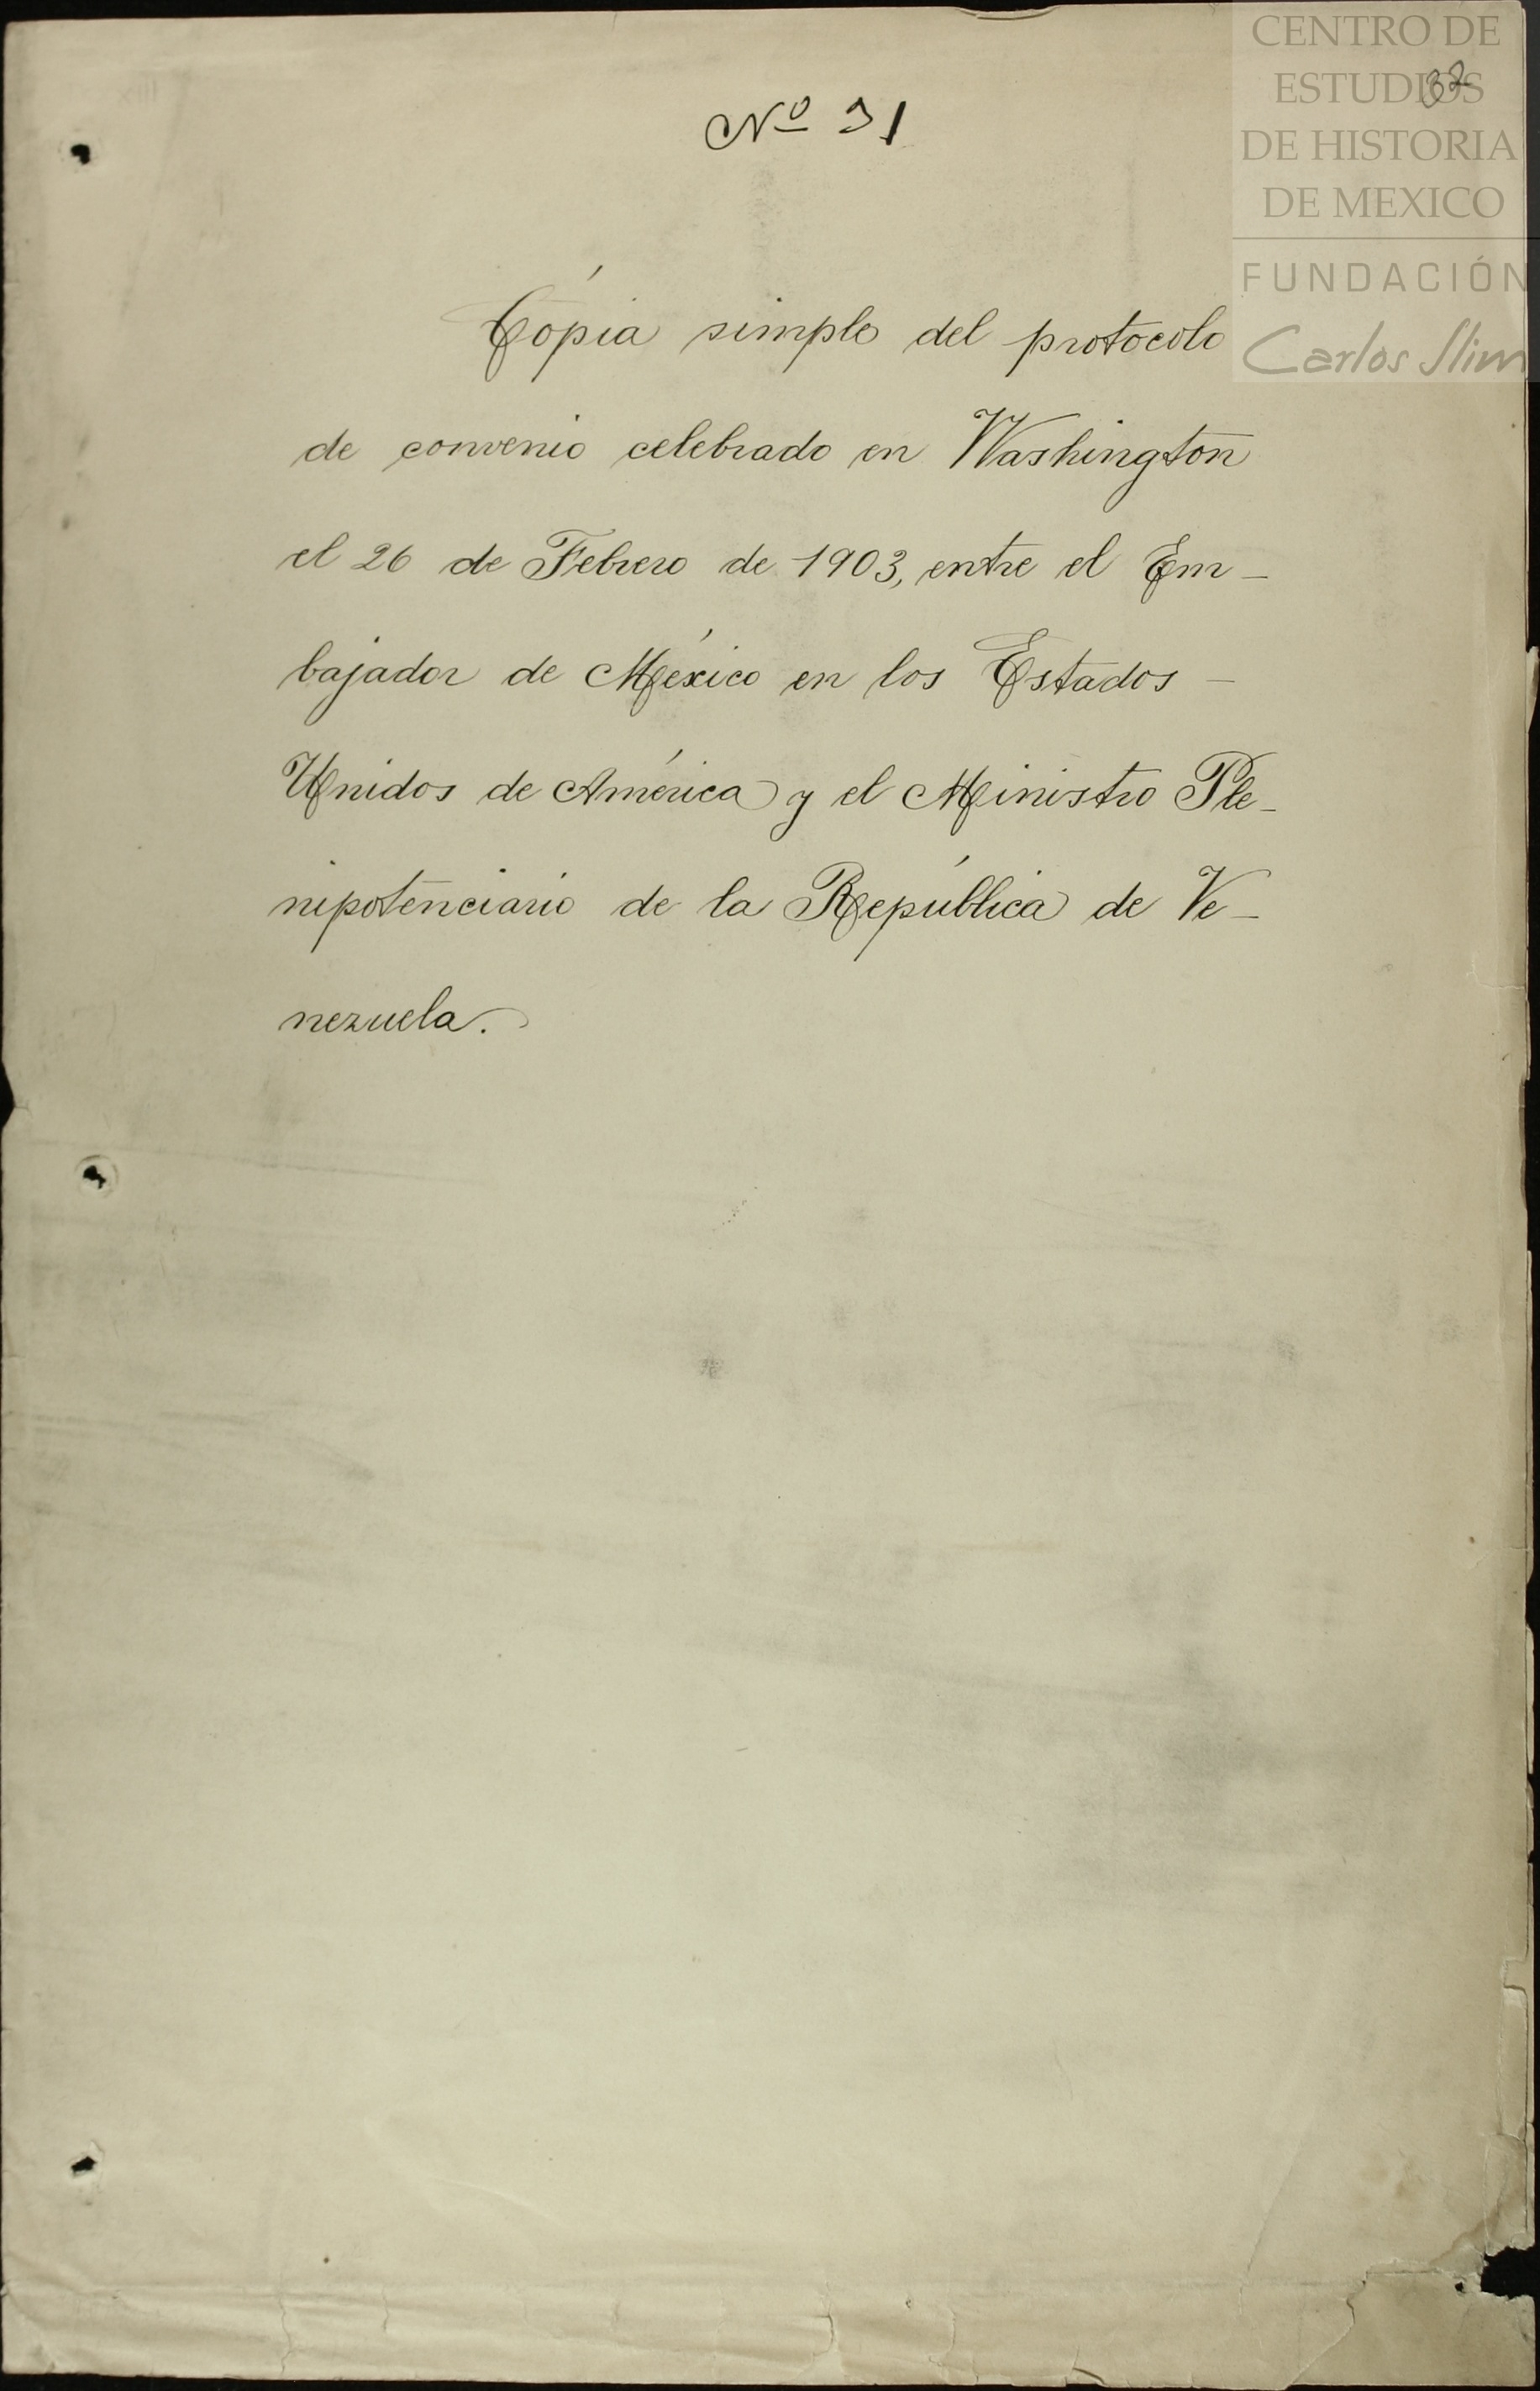 CENTRO DE
ESTUDIOS
DE HISTORIA
DE MEXICO
FUNDACIÓN
Carlos Slim
32
Nº 31
Cópia simple del protocolo
de convenio celebrado en Washington
el 26 de Febrero de 1903, entre el Em-
bajador de México en los Estados -
Unidos de América y el Ministro Ple-
nipotenciario de la República de Ve-
nezuela.